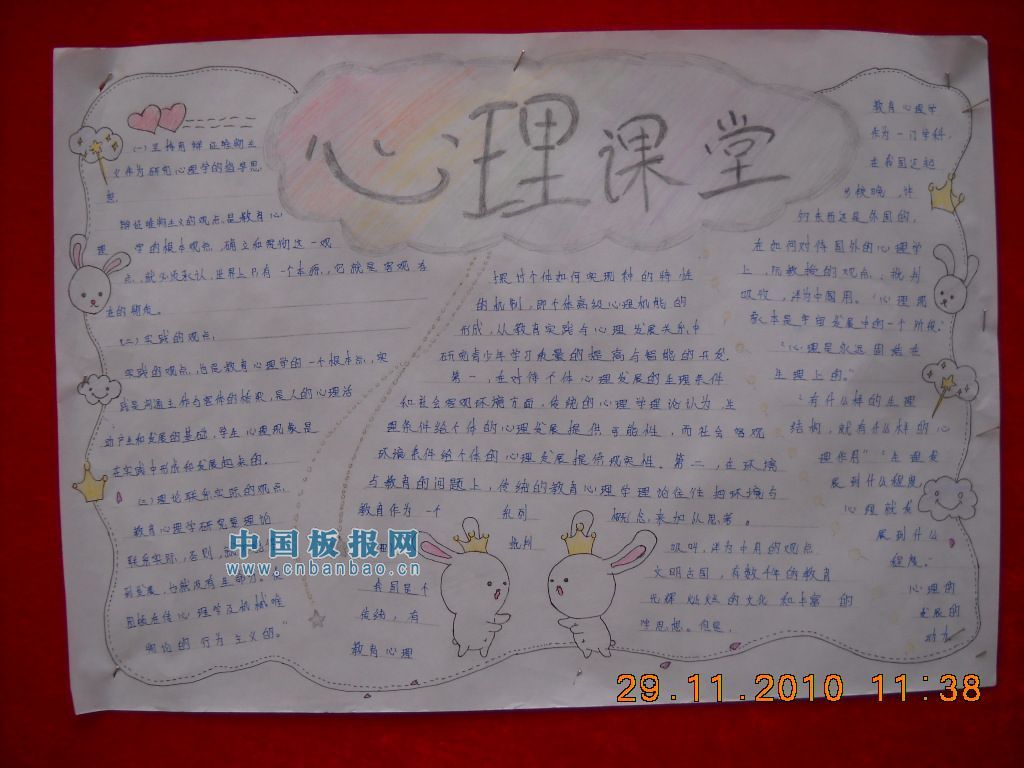 心理课堂
(一)坚持用辩证唯物主
义作为研究心理学的指导思
想
辩证唯物主义的观点是教育心
理学的根本观点,确立和贯彻这一观
点,就必须承认,世界上只有一个本源,它就是客观存
在的物质。
(二)实践的观点。
实践的观点,也是教育心理学的一个根本点,实
践是沟通主体与客体的桥梁,是人的心理活
动产生和发展的基础,学生心理现象是
在实践中形成和发展起来的。
(三)理论联系实际的观点。
教育心理学研究要理论
联系实际,否则,就
到发展,也就没有生命力。
心理学及机械唯
物论的行为主义的。”
探讨个体如何实现种的特性
的机制,即个体高级心理机能的
形成,从教育实践与心理发展关系中
研究青少年学习质量的提高与智能的开发.
第一,在对待个体心理发展的生理条件
和社会客观环境方面,传统的心理学理论认为,生
理条件给个体的心理发展提供可能性,而社会客观
环境条件给个体的心理发展提供现实性。第二,在环境
与教育的问题上,传统的教育心理学理论往往把环境与
教育作为一个 系列 概念,来加以思考。
我国是个
传统,有
教育心理
吸收,洋为中用的观点
文明古国,有数千年的教育
光辉灿烂的文化和丰富的
学思想。但是,
教育心理学
作为一门学科,
在我国起
步较晚,许
多东西还是外国的,
在如何对待国外的心理学
上,
的观点,批判
吸收,洋为中国用。“心理现
象本是宇宙发展中的一个阶段”
“心理是永远固着在
生理上的。”
“有什么样的生理
结构,就有什么样的心
理作用”“生理发
展到什么程度,
心理就发
展到什么
程度。”
心理的
发展的
动力
中国板报网
www.cnbanbao.cn
29.11.2010 11:38